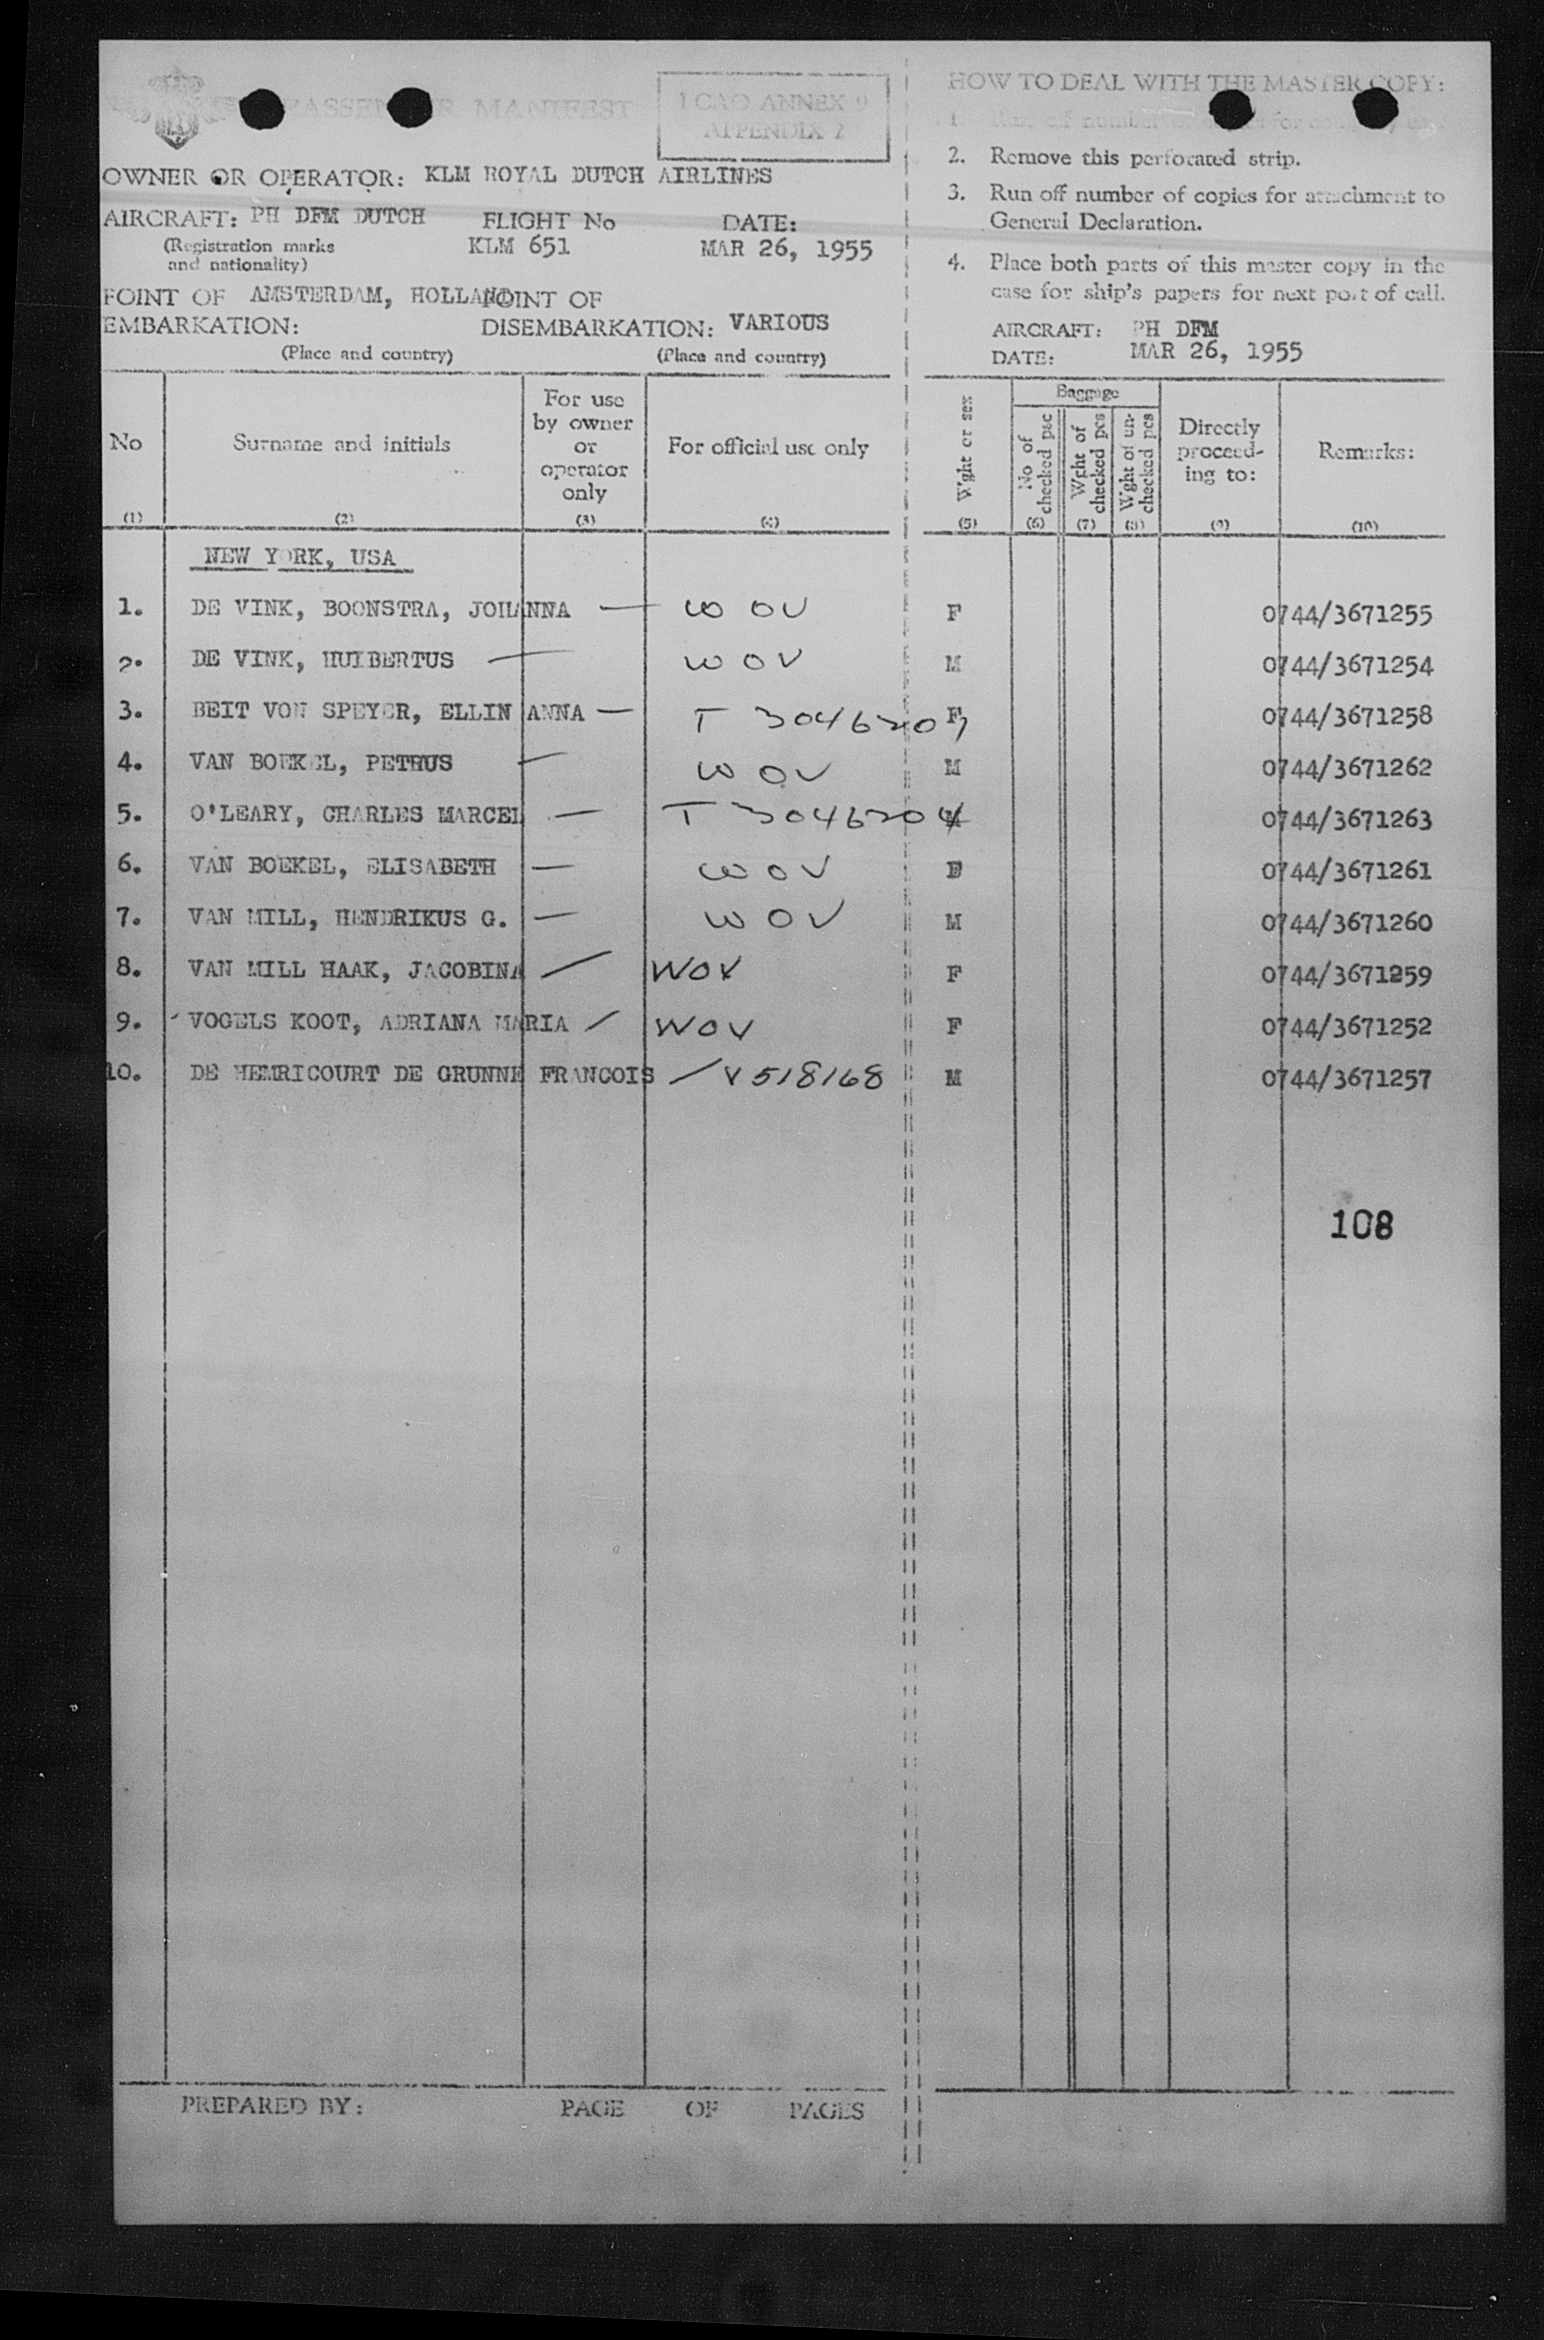 PASSENGER MANIFEST
ICAO ANNEX 9
APPENDIX 2
OWNER OR OPERATOR: KLM ROYAL DUTCH AIRLINES
AIRCRAFT: PH DFM DUTCH FLIGHT No DATE:
(Registration marks KLM 651 MAR 26, 1955
and nationality)
POINT OF AMSTERDAM, HOLLAND POINT OF
EMBARKATION: DISEMBARKATION: VARIOUS
(Place and country) (Place and country)
No Surname and initials For use by owner or operator only For official use only
(1) (2) (3) (4)
NEW YORK, USA
1. DE VINK, BOONSTRA, JOHANNA — WOV
2. DE VINK, HUIBERTUS — WOV
3. BEIT VON SPEYER, ELLIN ANNA — T 3046207
4. VAN BOEKEL, PETRUS — WOV
5. O'LEARY, CHARLES MARCEL — T 3046204
6. VAN BOEKEL, ELISABETH — WOV
7. VAN MILL, HENDRIKUS G. — WOV
8. VAN MILL HAAK, JACOBINA / WOV
9. VOGELS KOOT, ADRIANA MARIA / WOV
10. DE HEMRICOURT DE GRUNNE FRANCOIS / V518168
PREPARED BY: PAGE OF PAGES
HOW TO DEAL WITH THE MASTER COPY:
1. Run off number for
2. Remove this perforated strip.
3. Run off number of copies for attachment to
General Declaration.
4. Place both parts of this master copy in the
case for ship's papers for next port of call.
AIRCRAFT: PH DFM
DATE: MAR 26, 1955
Wght or sex Baggage Directly proceed-ing to: Remarks:
No of checked pec Wght of checked pcs Wght of un-checked pcs
(5) (6) (7) (8) (9) (10)
F 0744/3671255
M 0744/3671254
F 0744/3671258
M 0744/3671262
M 0744/3671263
F 0744/3671261
M 0744/3671260
F 0744/3671259
F 0744/3671252
M 0744/3671257
108